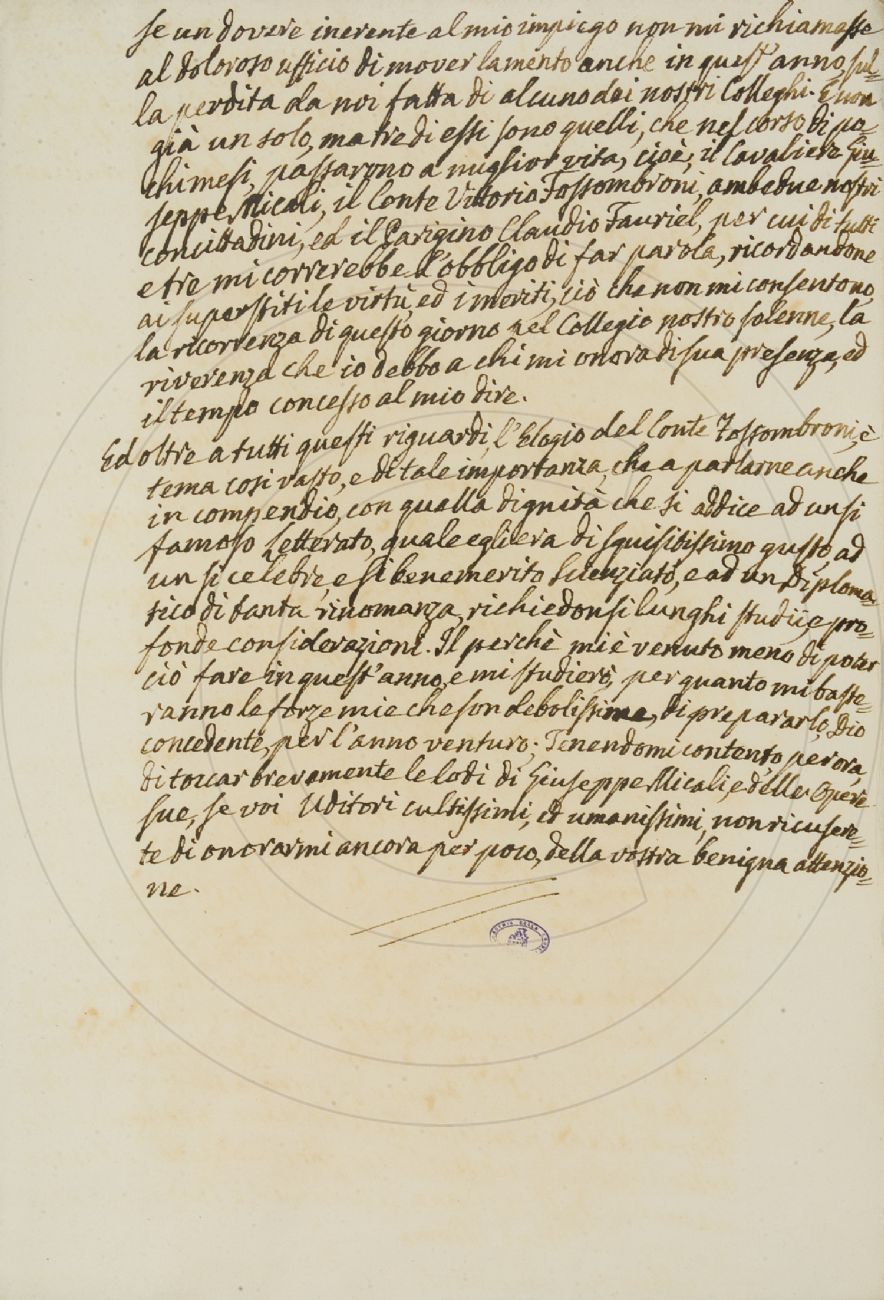 se un dovere inerente al mio impiego non mi richiamasse
al doloroso ufficio di mover lamento anche in quest'anno sul=
la perdita da noi fatta di alcuno dei nostri Colleghi. E non
già un solo, ma tre di essi sono quelli, che nel corso di po=
chi mesi, passarono a miglior vita, cioè, il Cavaliere Giu=
seppe Micali, il Conte Vittorio Fossombroni, ambedue nostri
concittadini, ed il Parigino Claudio Fauriel, per cui di tutti
e tre mi correrebbe l'obbligo di far parola, ricordandone
ai superstiti le virtù, ed i meriti, ciò che non mi consentono,
la ricorrenza di questo giorno nel Collegio nostro solenne, la
riverenza che io debbo a chi mi onora di sua presenza, ed
il tempo concesso al mio dire.
Ed oltre a tutti questi riguardi, l'Elogio del Conte Fossombroni, è
tema così vasto, e di tale importanza, che a parlarne anche
in compendio, con quella dignità che si addice ad un sì
famoso Letterato, quale egli era di squisitissimo gusto, ad
un sì celebre, e sì benemerito Scienziato, e ad un Diploma=
tico di tanta rinomanza, richiedonsi lunghi studii, e pro=
fonde considerazioni. Il perchè mi è venuto meno di poter
ciò fare in quest'anno, e mi studierò, per quanto mi baste=
ranno le forze mie che son debolissime, di prepararlo, Dio
concedente, per l'anno venturo; Tenendomi contento, per ora,
di toccar brevemente le lodi di Giuseppe Micali, e delle Opere
sue, se voi Uditori cultissimi, ed umanissimi, non ricusere=
te di onorarmi ancora per poco, della vostra benigna attenzio=
ne.